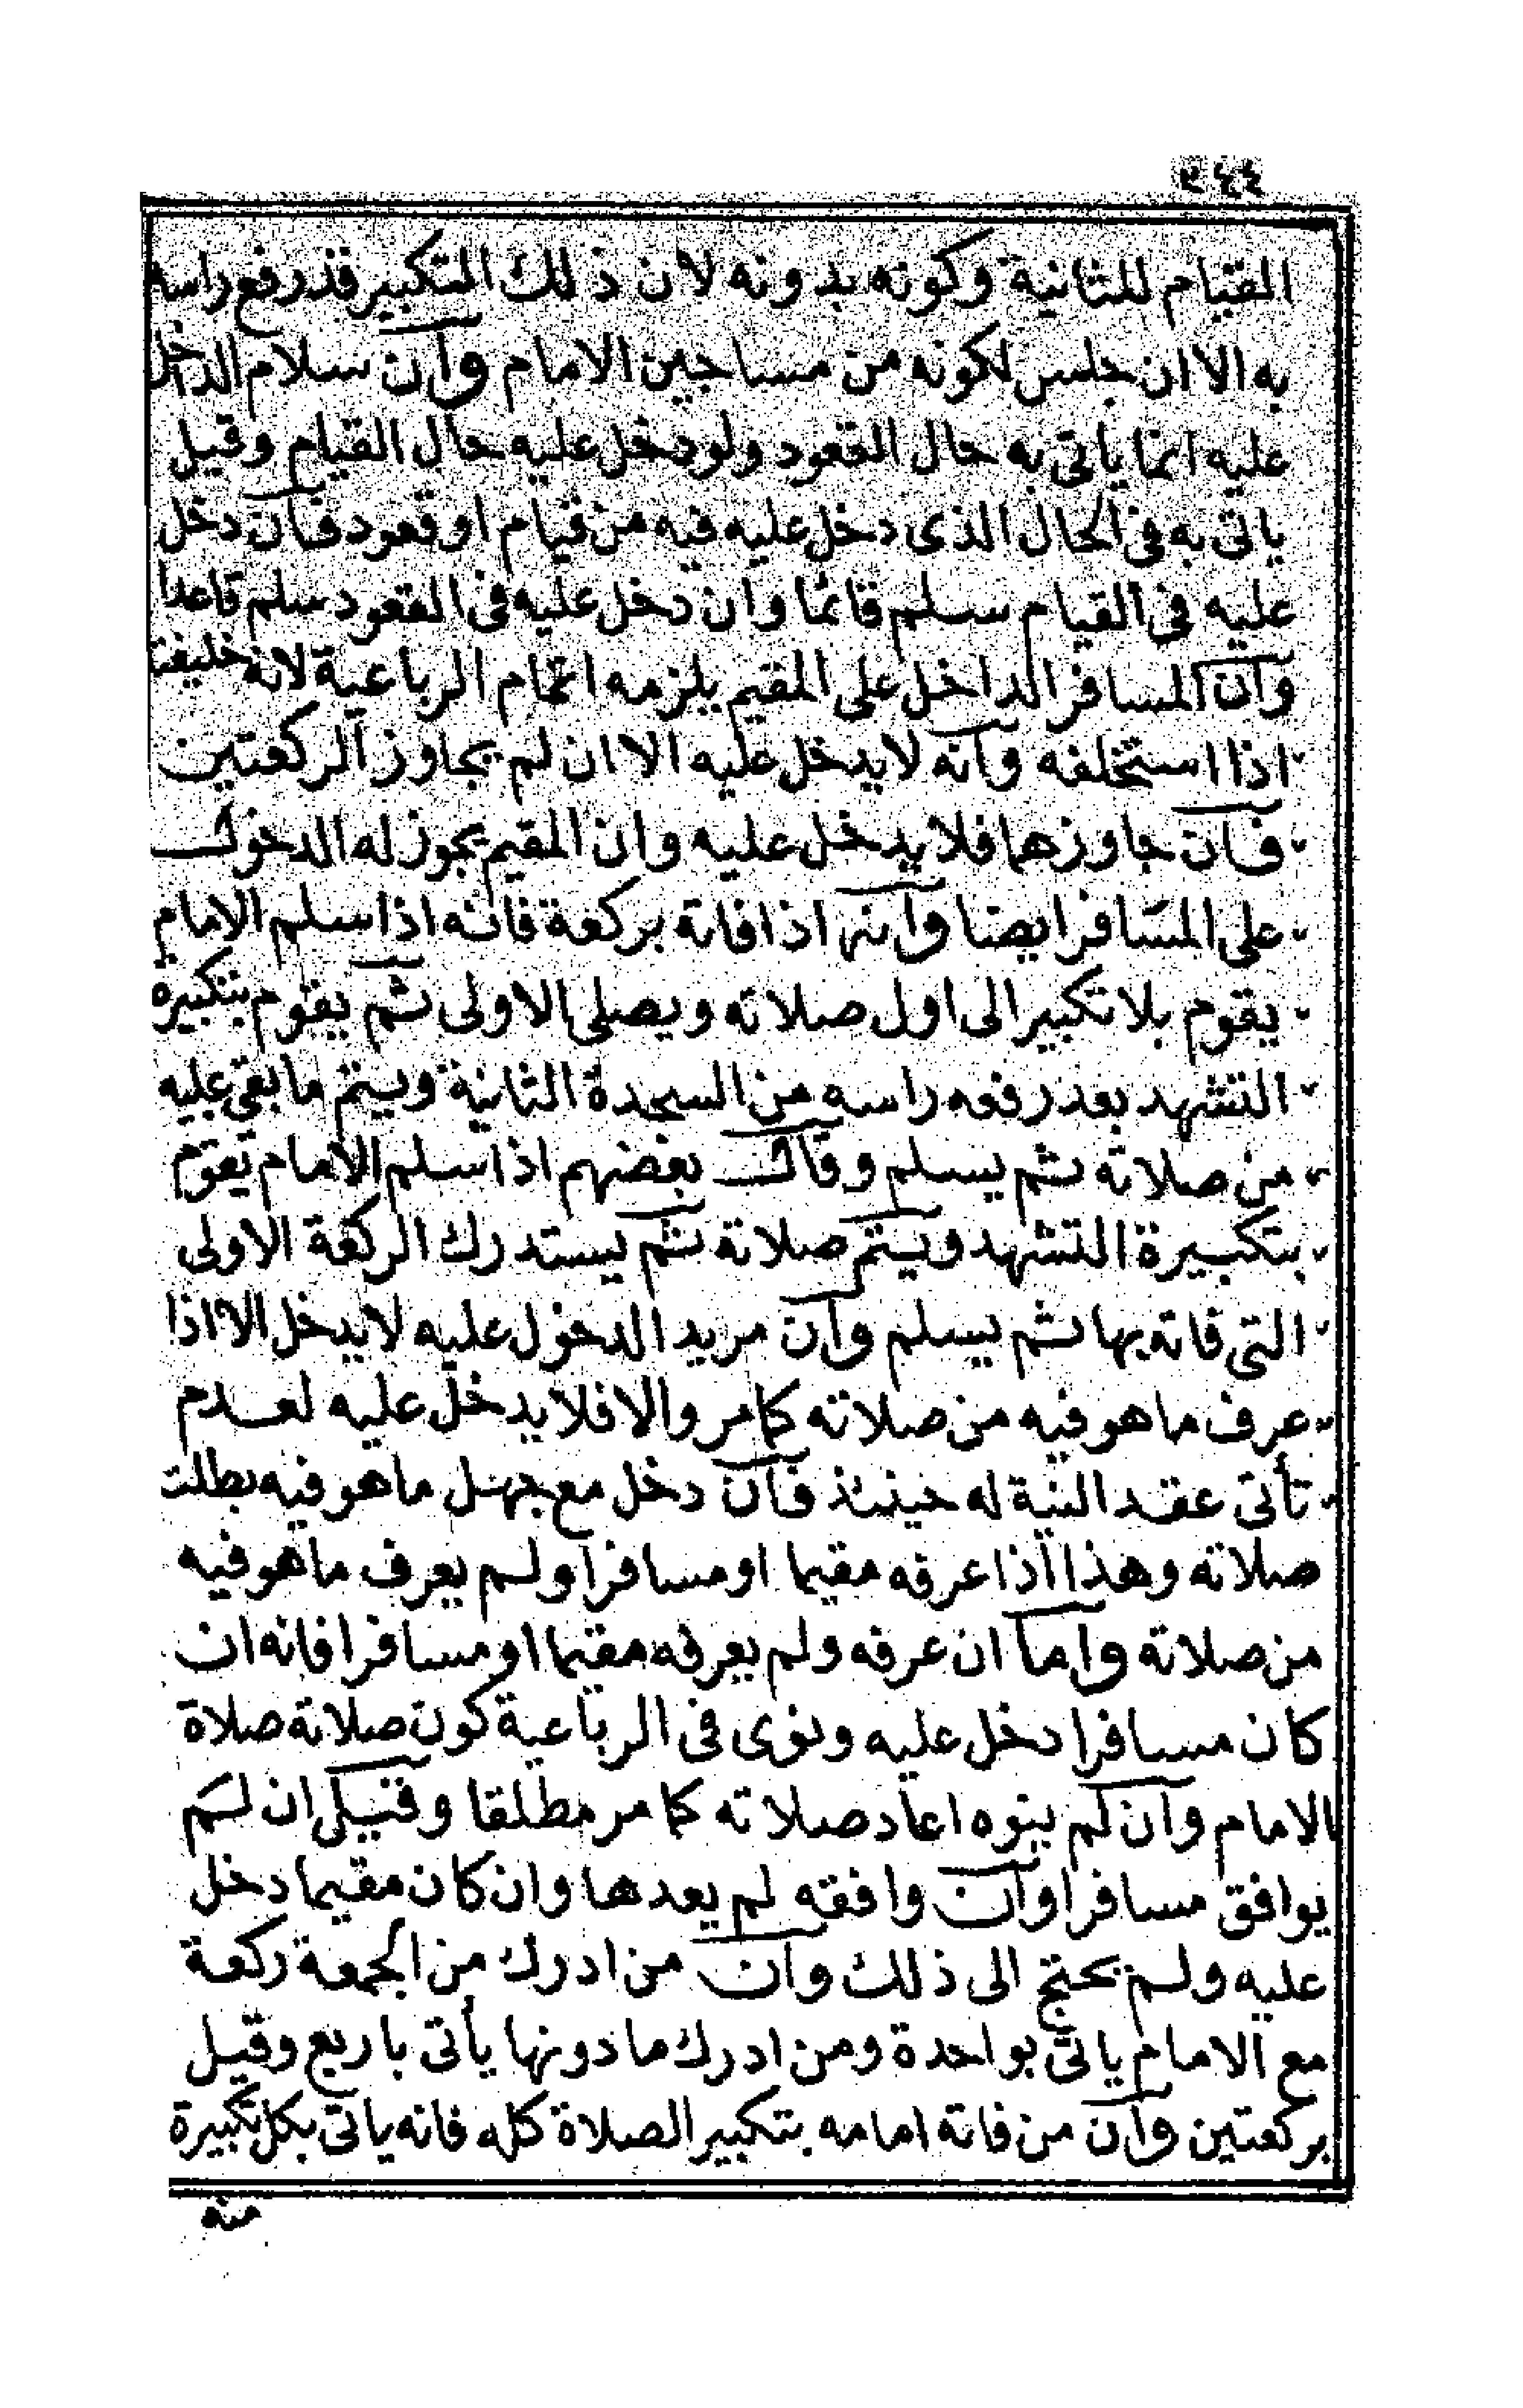 ٢٤٤
القيام للثانية وكونه بدونه لان ذلك التكبير قد رفع راسه
به الا ان جلس لكونه من مساجين الامام وان سلام الداخل
عليه انما ياتى به حال القعود ولو دخل عليه حال القيام وقيل
ياتى به فى الحال الذى دخل عليه فيه من قيام او قعود فان دخل
عليه فى القيام سلم قائما وان دخل عليه فى القعود سلم قاعدا
وان المسافر الداخل على المقيم يلزمه اتمام الرباعية لانه خليفة
اذا استخلفه وانه لا يدخل عليه الا ان لم يجاوز الركعتين
فان جاوزهما فلا يدخل عليه وان المقيم يجوز له الدخول
على المسافر ايضا وانه اذا فاته بركعة فانه اذا سلم الامام
يقوم بلا تكبير الى اول صلاته ويصلى الاولى ثم يقوم بتكبيرة
التشهد بعد رفعه راسه من السجدة الثانية ويتم ما بقى عليه
من صلاته ثم يسلم وقال بعضهم اذا سلم الامام يقوم
بتكبيرة التشهد ويتم صلاته ثم يستدرك الركعة الاولى
التى فاته بها ثم يسلم وان مريد الدخول عليه لا يدخل الا اذا
عرف ما هو فيه من صلاته كما مر والا فلا يدخل عليه لعدم
تأتى عقد النية له حينئذ فان دخل مع جهل ما هو فيه بطلت
صلاته وهذا اذا عرفه مقيما او مسافرا ولم يعرف ما هو فيه
من صلاته واما ان عرفه ولم يعرفه مقيما او مسافرا فانه ان
كان مسافرا دخل عليه ونوى فى الرباعية كون صلاته صلاة
الامام وان لم ينوه اعاد صلاته كما مر مطلقا وقيل ان لم
يوافق مسافرا وان وافقه لم يعدها وان كان مقيما دخل
عليه ولم يحتج الى ذلك وان من ادرك من الجمعة ركعة
مع الامام ياتى بواحدة ومن ادرك ما دونها يأتى باربع وقيل
بركعتين وان من فاته امامه بتكبير الصلاة كله فانه ياتى بكل تكبيرة
منه